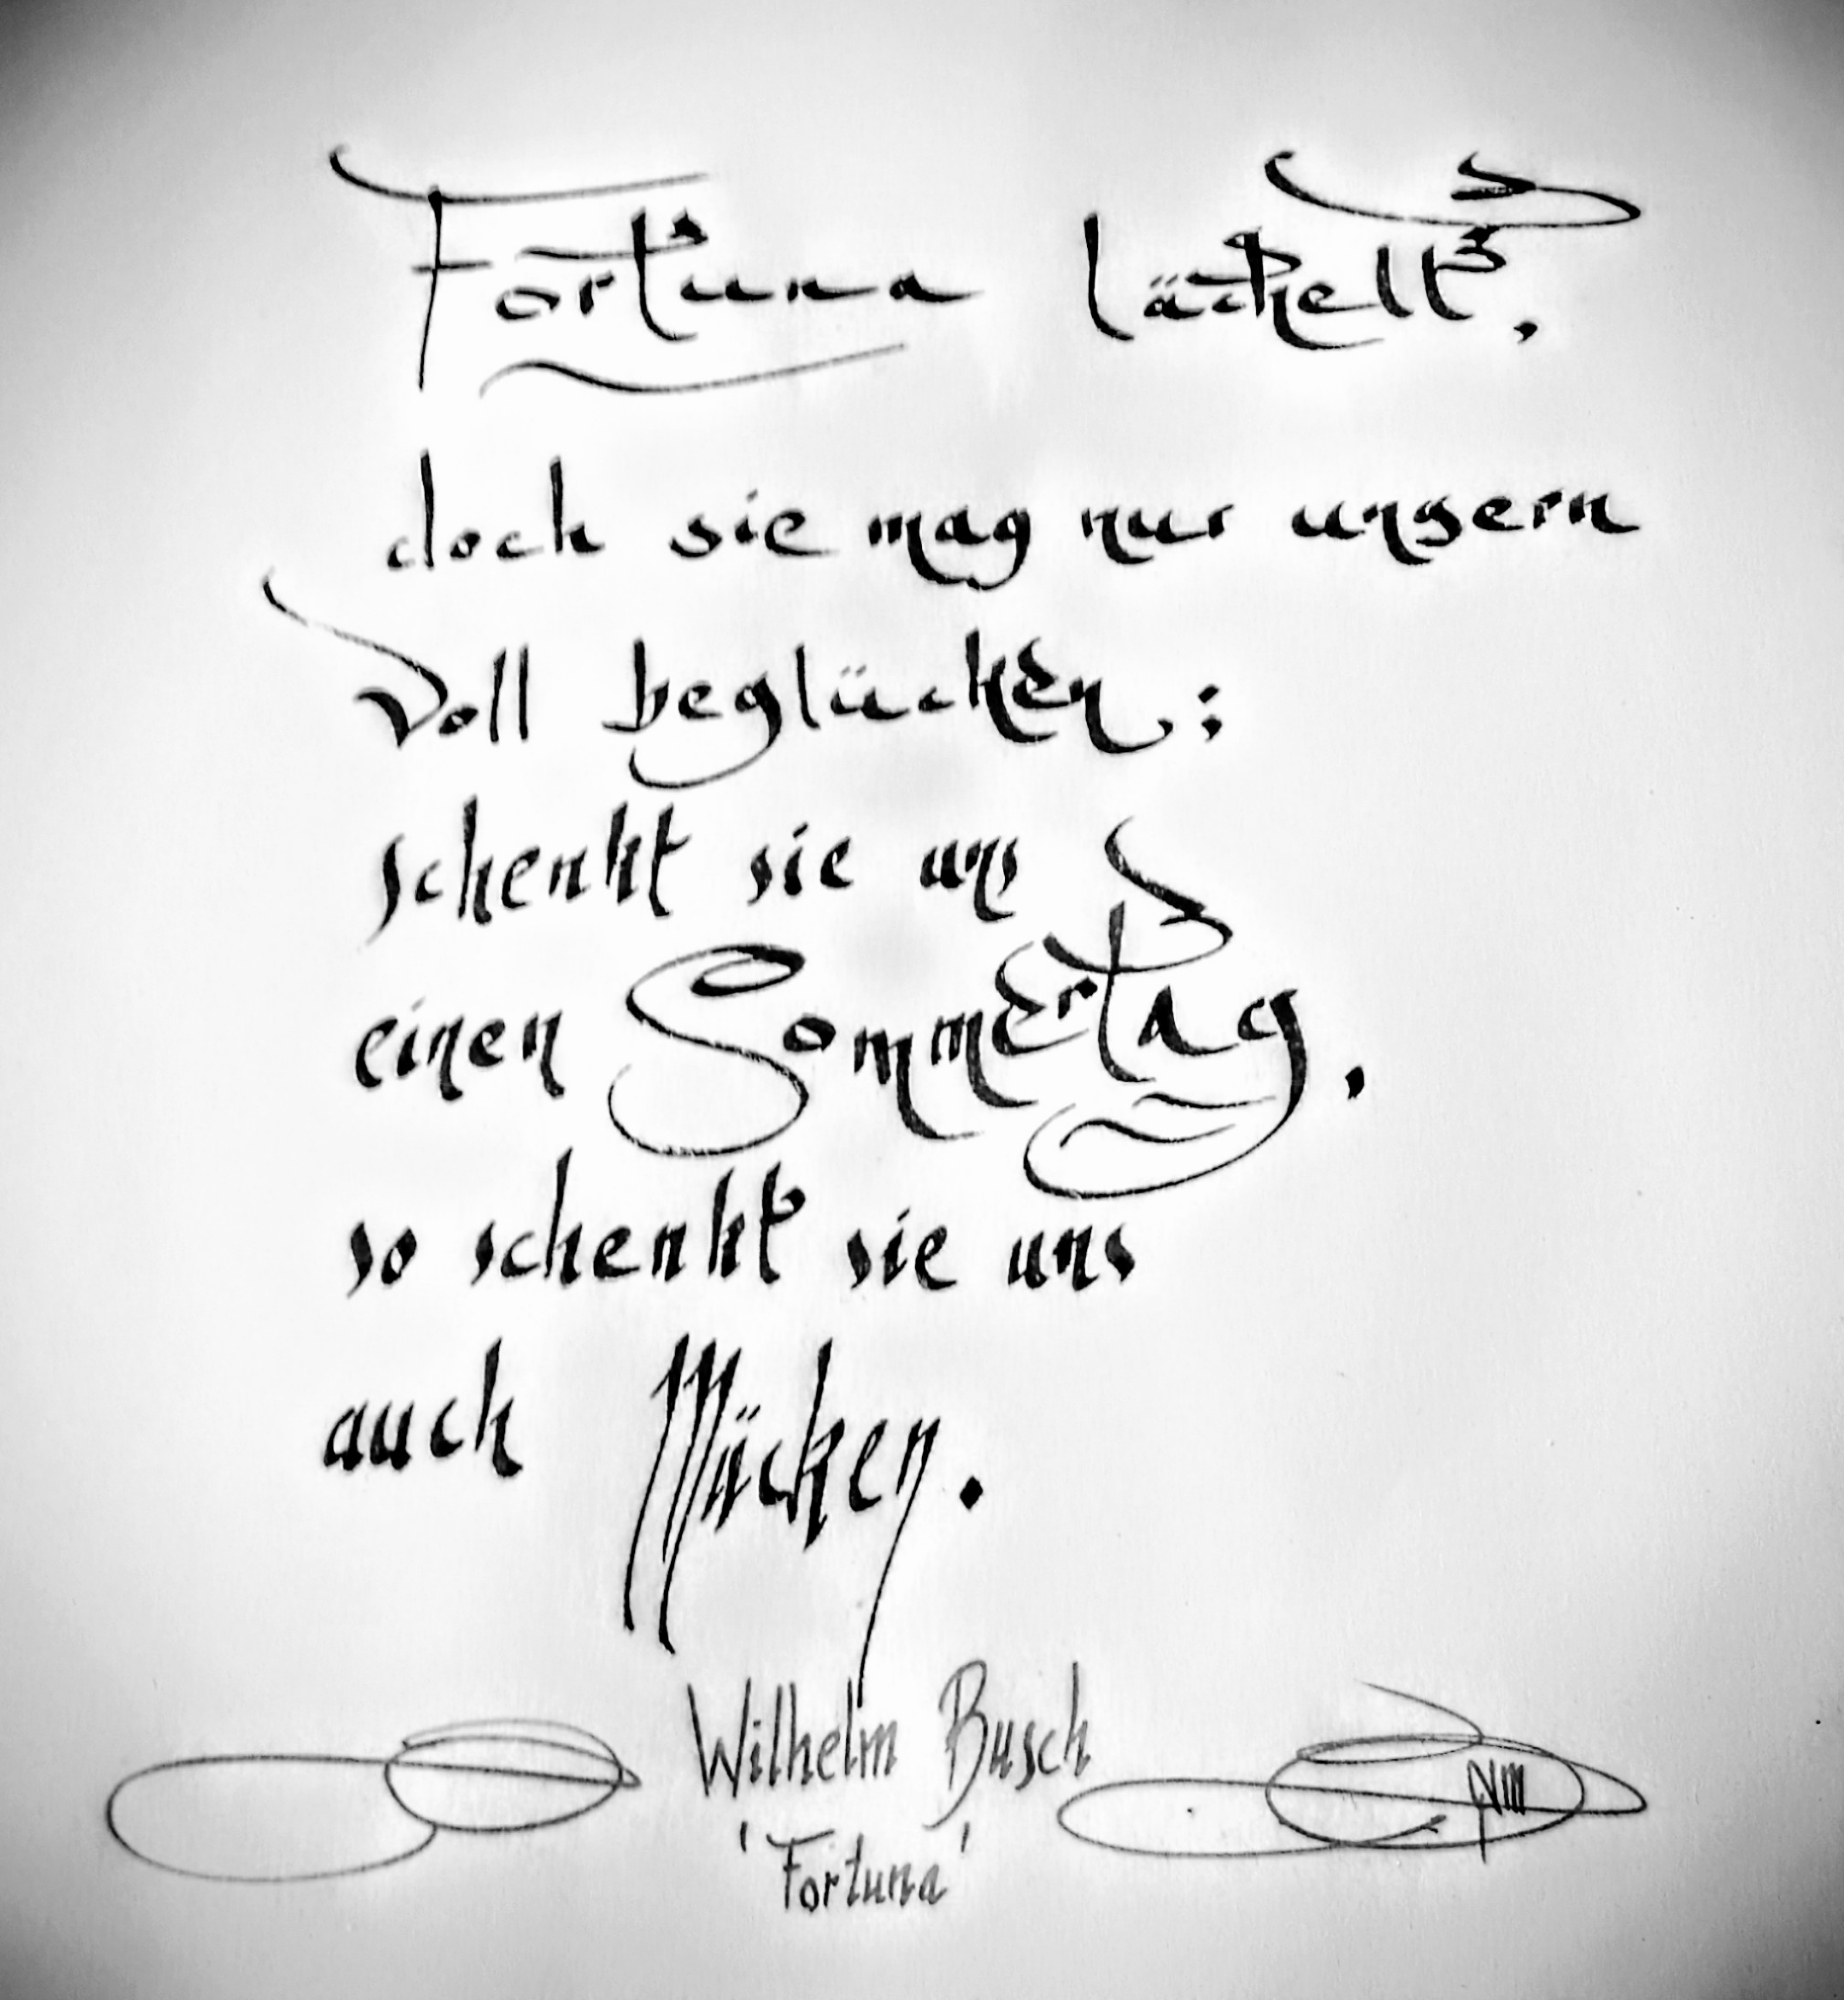 Fortuna lächelt,
doch sie mag nur ungern
voll beglücken:
schenkt sie uns
einen Sommertag,
so schenkt sie uns
auch Mücken.
Wilhelm Busch
'Fortuna'